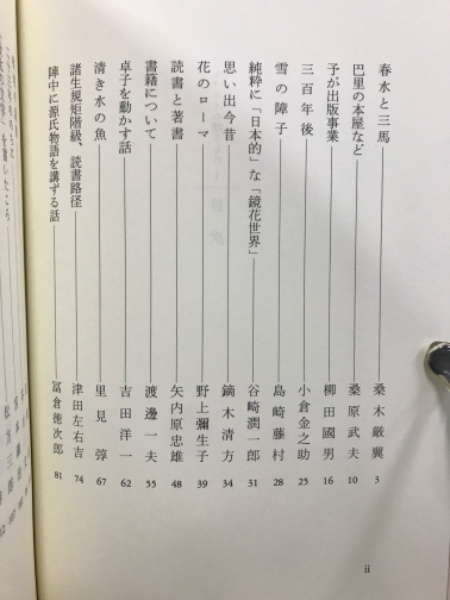 春水と三馬――桑木厳翼 3
巴里の本屋など――桑原武夫 10
予が出版事業――柳田國男 16
三百年後――小倉金之助 25
雪の障子――島崎藤村 28
純粋に「日本的」な「鏡花世界」――谷崎潤一郎 31
思い出今昔――鏑木清方 34
花のローマ――野上彌生子 39
読書と著書――矢内原忠雄 48
書籍について――渡邊一夫 55
卓子を動かす話――吉田洋一 62
清き水の魚――里見弴 67
諸生規矩階級、読書路径――津田左右吉 74
陣中に源氏物語を講ずる話――冨倉徳次郎 81
ii